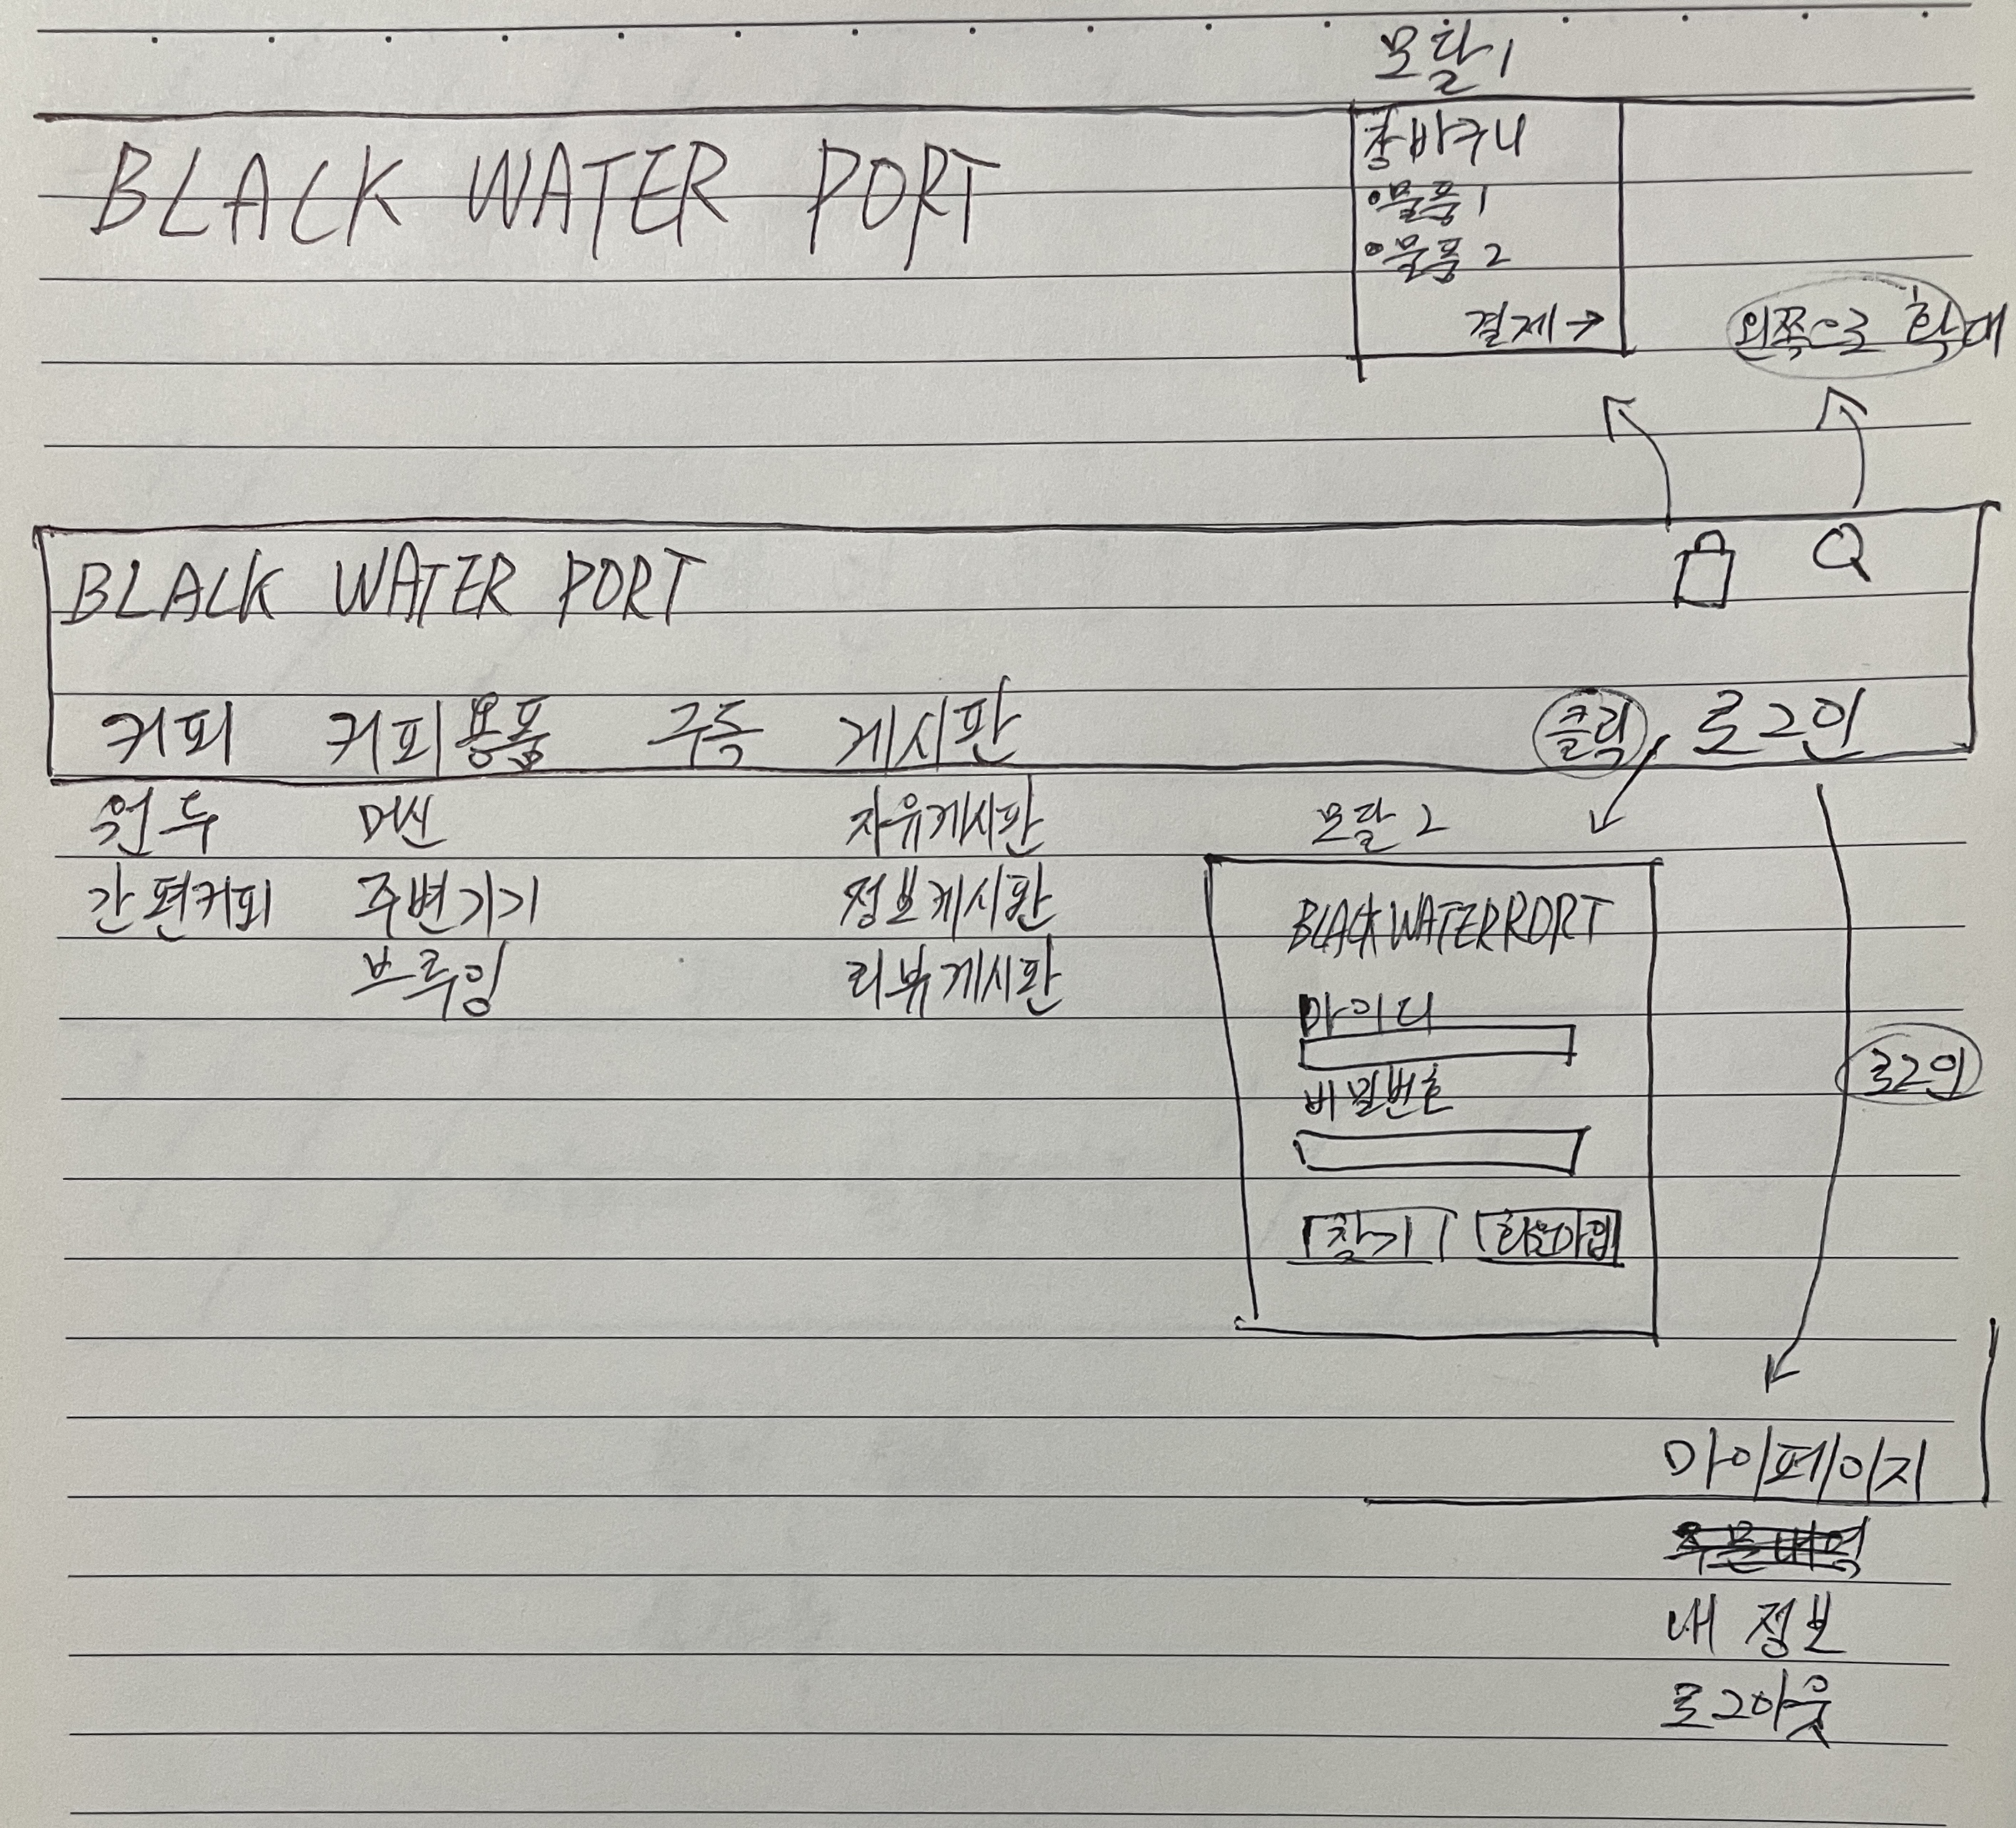 모달 1
BLACK WATER PORT
장바구니
•물품 1
•물품 2
결제 →
왼쪽으로 확대
BLACK WATER PORT
커피 커피용품 구독 게시판 클릭 로그인
원두 머신 자유게시판 모달 2
간편커피 주변기기 정보게시판
브루잉 리뷰게시판
BLACK WATER PORT
아이디
비밀번호
로그인
찾기 회원가입
마이페이지
주문내역
내 정보
로그아웃